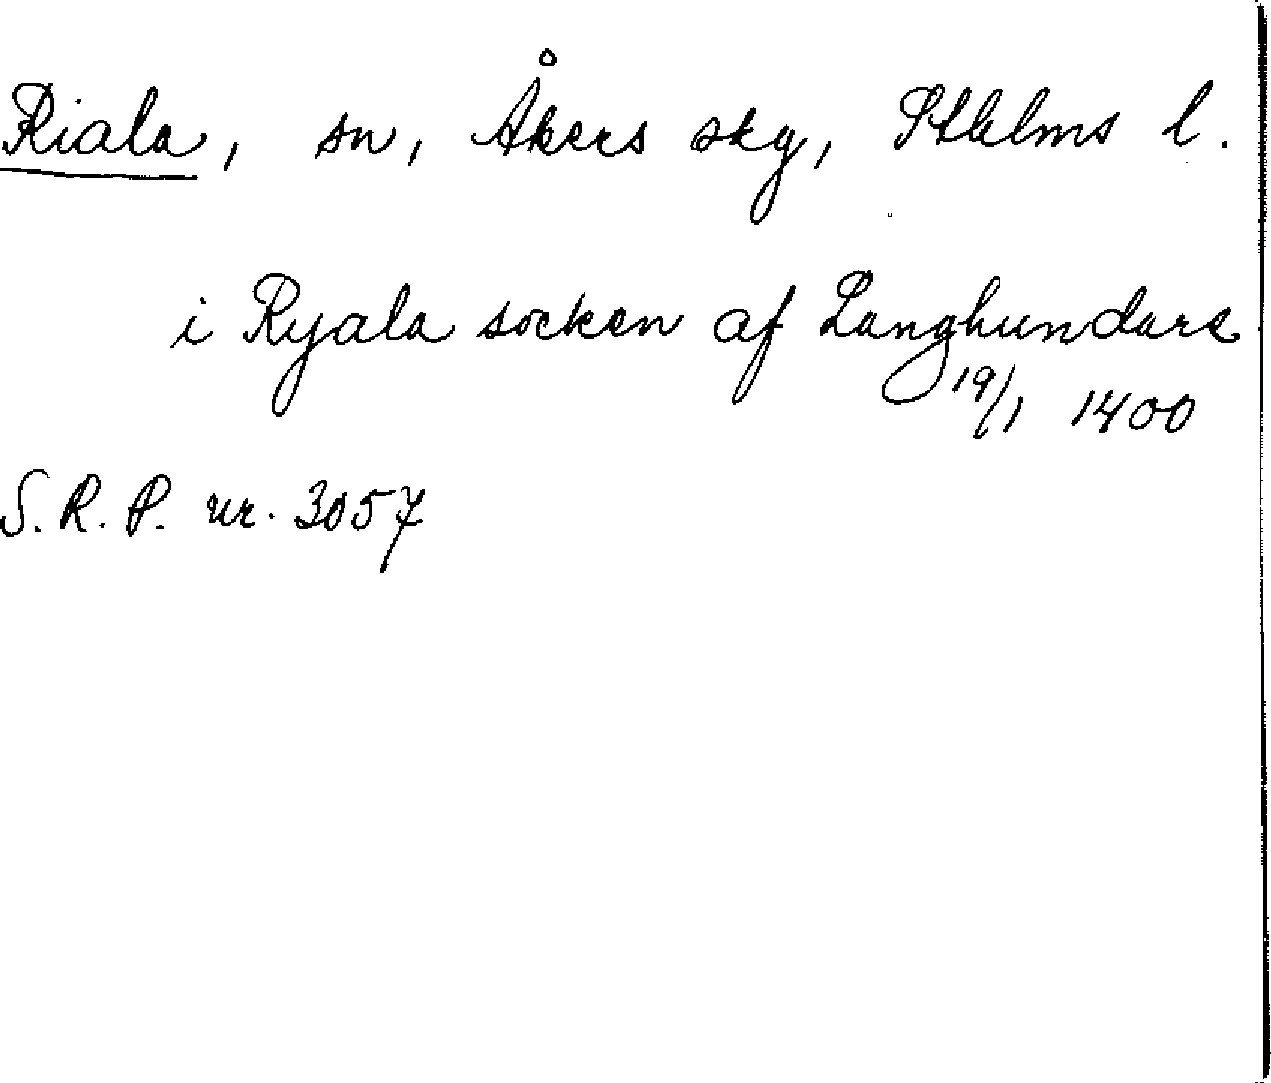 Riala, sn, Åkers skg, Sthlms l.
i Ryala socken af Langhundare
19/1 1400
S. R. P. nr. 3057